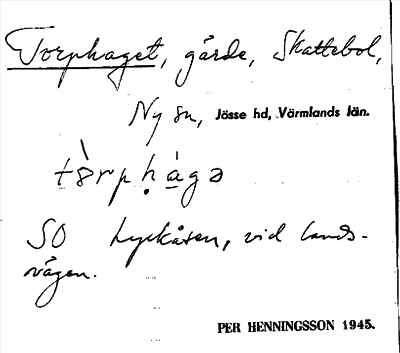 Torphaget, gärde, Skattebol,
Ny sn, Jösse hd, Värmlands län.
tȯ̀rpḥága
SO Lyckåsen, vid lands-
vägen.
PER HENNINGSSON 1945.